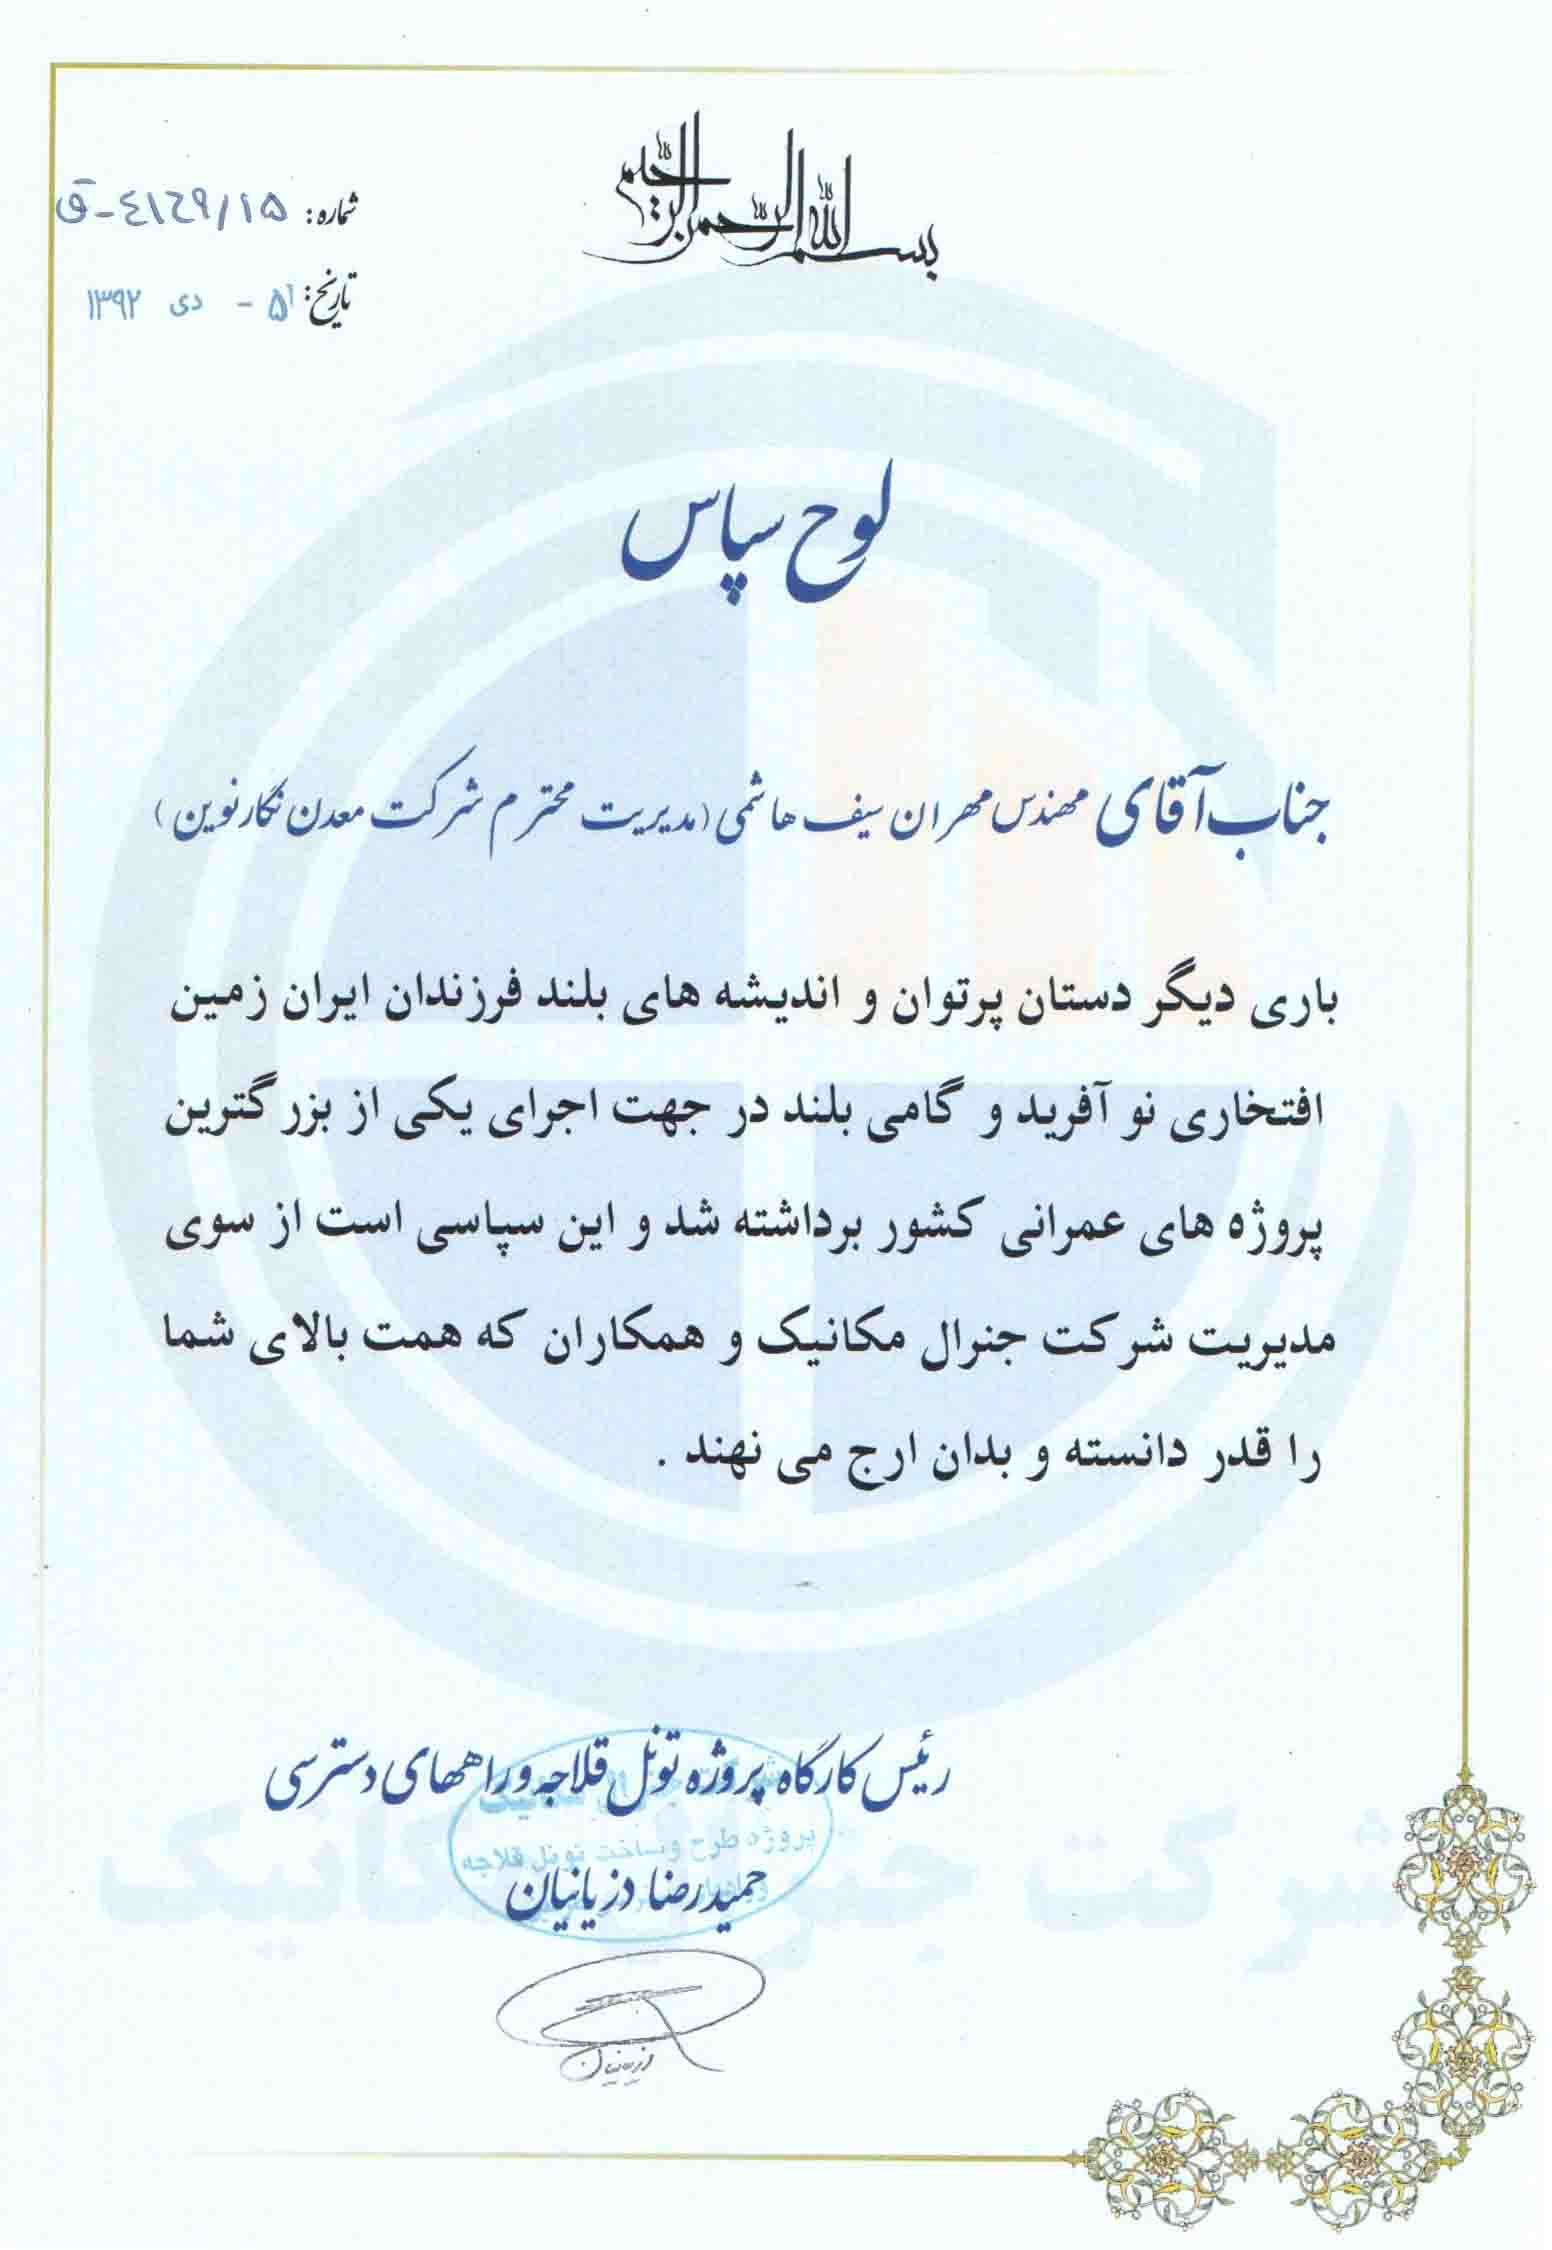 بسم الله الرحمن الرحیم
شماره: ۱۵/۴۱۲۹-ق
تاریخ: ۵ - دی ۱۳۹۲
لوح سپاس
جناب آقای مهندس مهران سیف هاشمی (مدیریت محترم شرکت معدن نگار نوین)
باری دیگر دستان پرتوان و اندیشه های بلند فرزندان ایران زمین
افتخاری نو آفرید و گامی بلند در جهت اجرای یکی از بزرگترین
پروژه های عمرانی کشور برداشته شد و این سپاسی است از سوی
مدیریت شرکت جنرال مکانیک و همکاران که همت بالای شما
را قدر دانسته و بدان ارج می نهند .
رئیس کارگاه پروژه تونل قلاجه و راههای دسترسی
پروژه طرح و ساخت تونل قلاجه
حمیدرضا دزیانیان
شرکت جنرال مکانیک